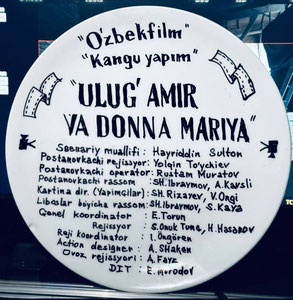 "O'zbekfilm"
"Kangu yapım"
"ULUG' AMIR
VA DONNA MARIYA"
Ssenariy muallifi : Hayriddin Sulton
Postanovkachi rejissyor: Yolqin To'ychiev
Postanovkachi operator: Rustam Muratov
Postanovkachi rassom : SH. Ibravmov, A. Kavsli
Kartina dir. (Yapimcilar) : SH. Rizayev, V. Ongi
Libaslar bo'yicha rassom: SH. Ibravmov, S. Kaya
Genel koordinator : E. Torun
Rejissyor : S. Onuk Tune, H. Hasanov
Reji koordinator : I. Öngören
Action designer : A. Shaken
Ovoz rejissyori : A. Fayz
DIT : E. Murodov